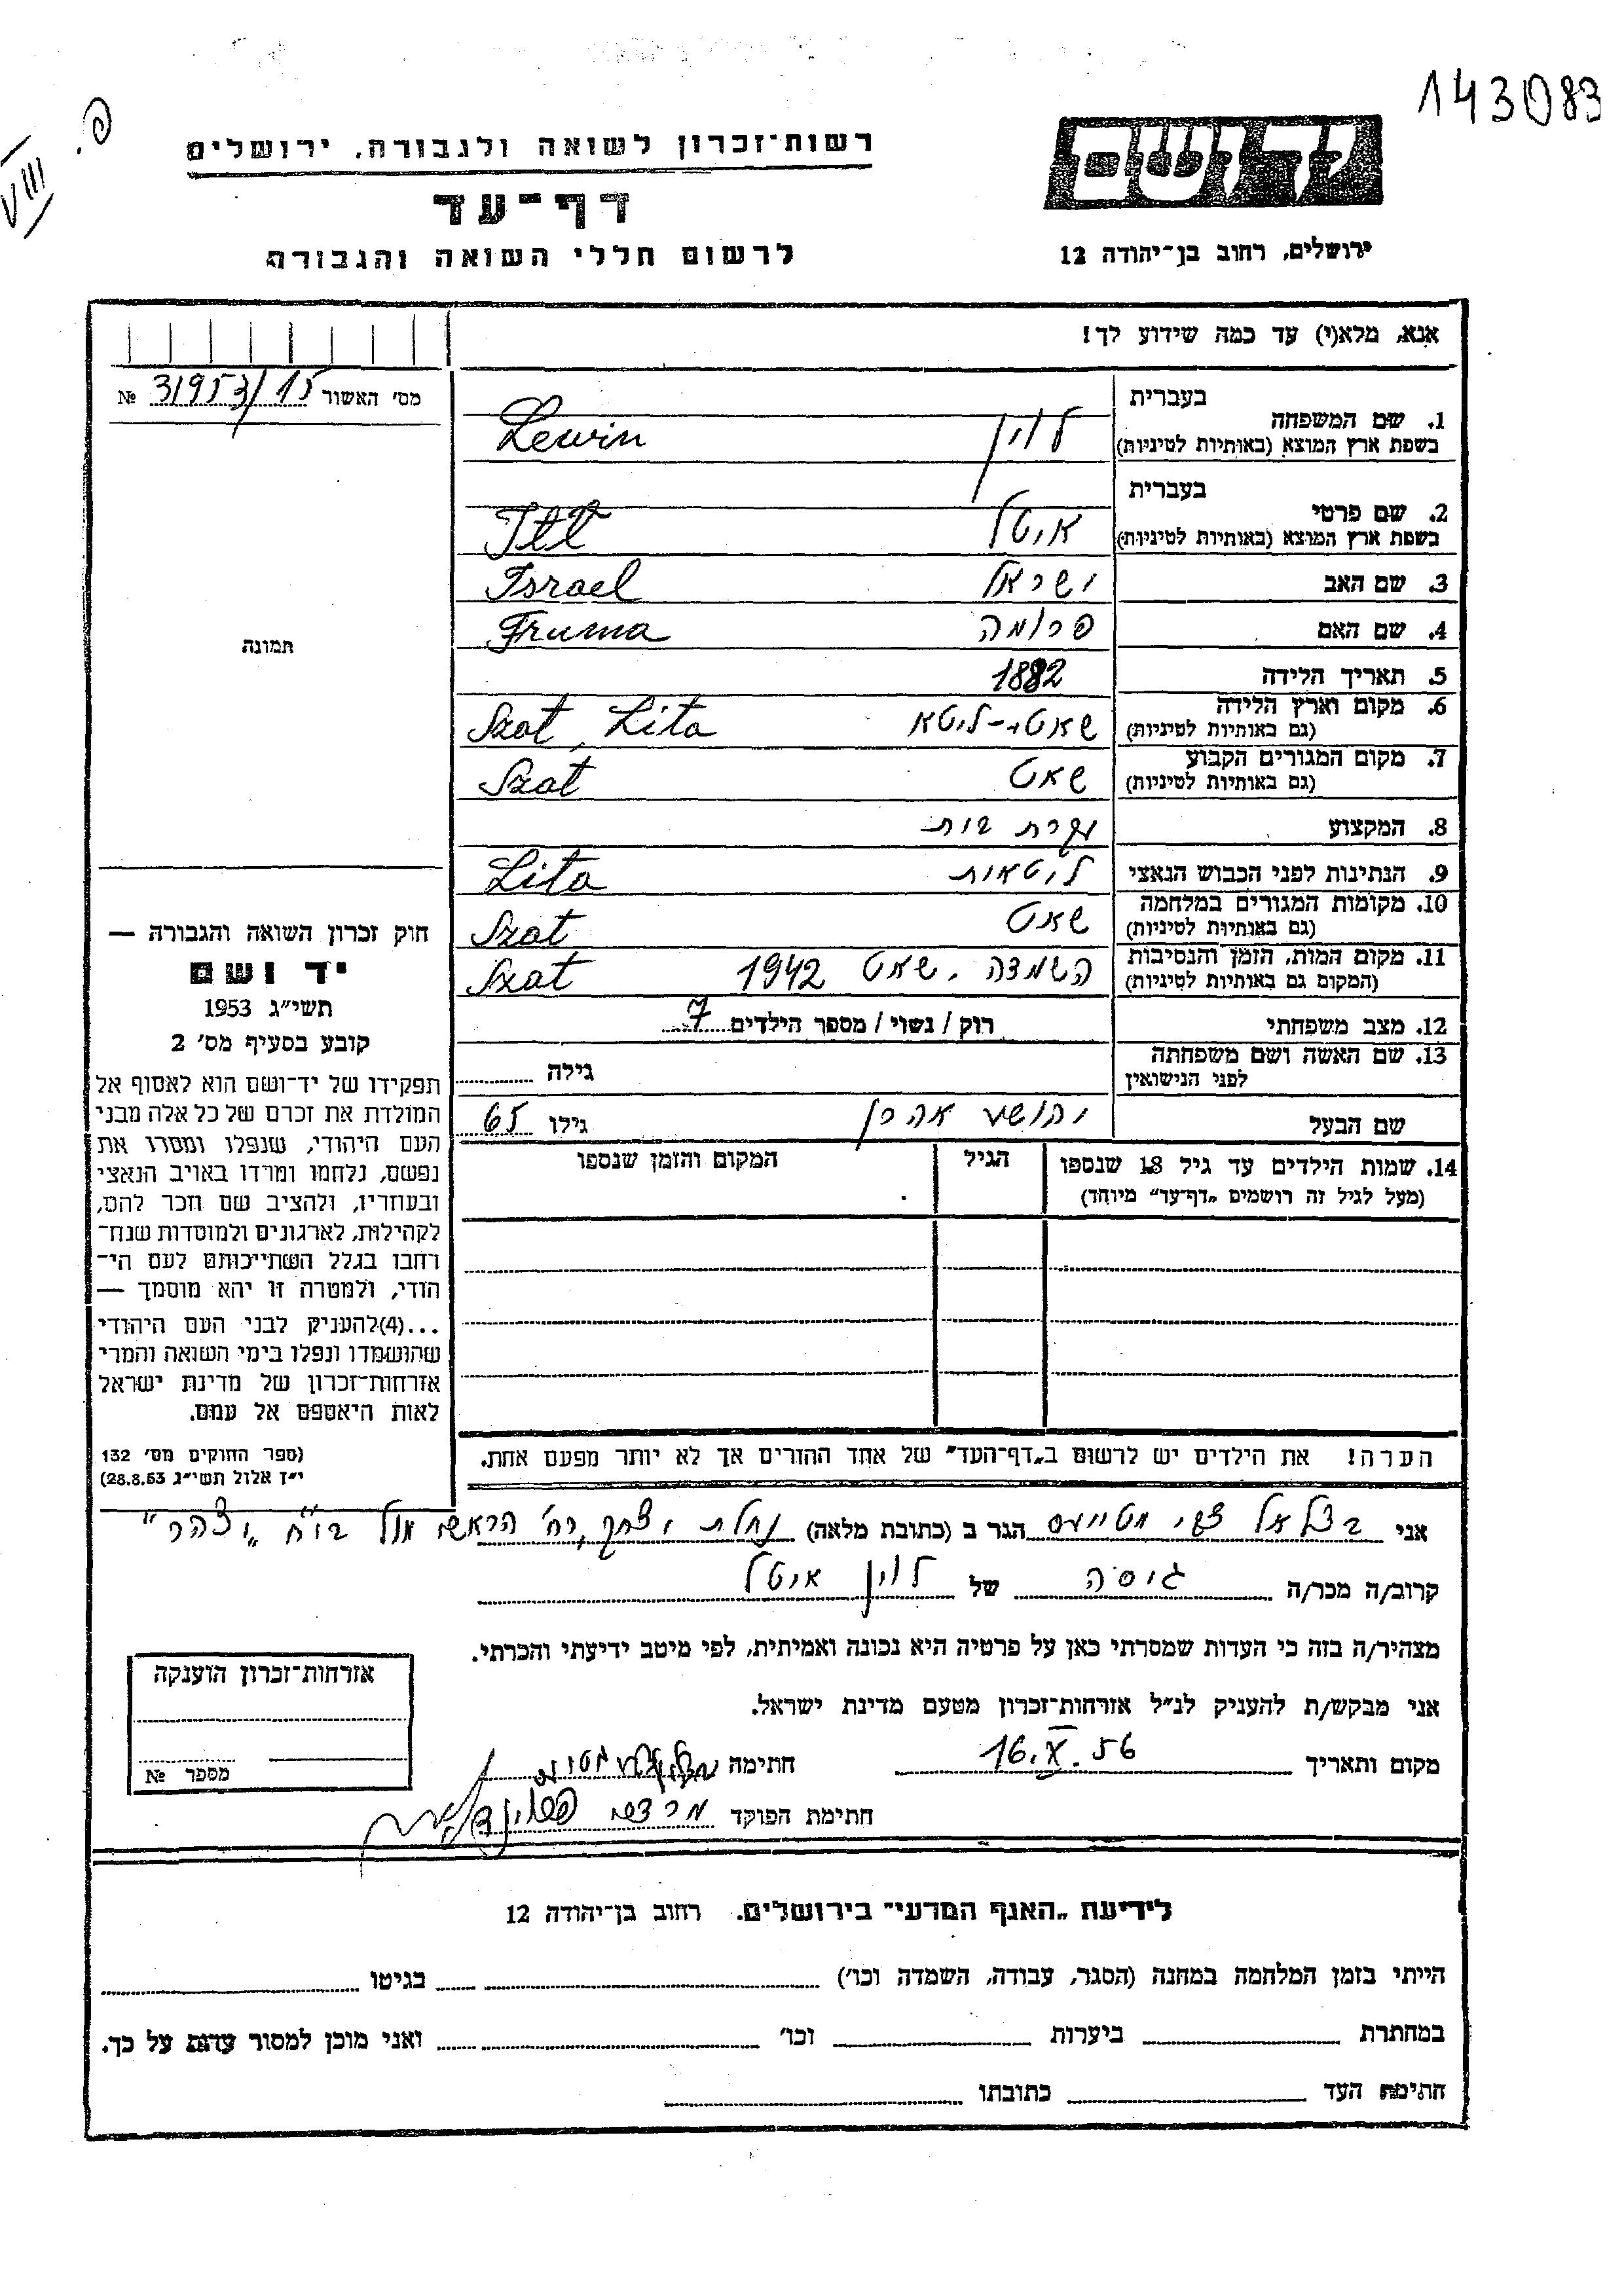 143083
VIII
פ.
יד ושם
רשות־זכרון לשואה ולגבורה, ירושלים
דף־עד
ירושלים, רחוב בן־יהודה 12
לרשום חללי השואה והגבורה
אנא, מלא(י) עד כמה שידוע לך!
מס׳ האשור 31953/15 №
1. שם המשפחה בעברית לוין
בשפת ארץ המוצא (באותיות לטיניות) Lewin
2. שם פרטי בעברית איטל
בשפת ארץ המוצא (באותיות לטיניות) Itl
3. שם האב ישראל Israel
4. שם האם פרומה Fruma
5. תאריך הלידה 1882
6. מקום וארץ הלידה שאט - ליטא Szat, Lita
(גם באותיות לטיניות)
7. מקום המגורים הקבוע שאט Szat
(גם באותיות לטיניות)
8. המקצוע עקרת בית
9. הנתינות לפני הכבוש הנאצי ליטאית Lita
10. מקומות המגורים במלחמה שאט Szat
(גם באותיות לטיניות)
11. מקום המות, הזמן והנסיבות השמדה, שאט 1942 Szat
(המקום גם באותיות לטיניות)
12. מצב משפחתי רוק / נשוי / מספר הילדים 7
13. שם האשה ושם משפחתה גילה
לפני הנישואין
שם הבעל יהושע אהרן גילו 65
14. שמות הילדים עד גיל 18 שנספו הגיל המקום והזמן שנספו
(מעל לגיל זה רושמים „דף־עד״ מיוחד)
תמונה
חוק זכרון השואה והגבורה —
יד ושם
תשי״ג 1953
קובע בסעיף מס׳ 2
תפקידו של יד־ושם הוא לאסוף אל
המולדת את זכרם של כל אלה מבני
העם היהודי, שנפלו ומסרו את
נפשם, נלחמו ומרדו באויב הנאצי
ובעוזריו, ולהציב שם וזכר להם,
לקהילות, לארגונים ולמוסדות שנח־
רבו בגלל השתייכותם לעם הי־
הודי, ולמטרה זו יהא מוסמך —
...(4)להעניק לבני העם היהודי
שהושמדו ונפלו בימי השואה והמרי
אזרחות־זכרון של מדינת ישראל
לאות היאספם אל עמם.
(ספר החוקים מס׳ 132
י״ז אלול תשי״ג 28.8.53)
הערה! את הילדים יש לרשום ב„דף־העד״ של אחד ההורים אך לא יותר מפעם אחת.
אני בצלאל צבי מטייעס הגר ב (כתובת מלאה) נחלת יצחק, רח׳ הראשי מול ביח״ „יצהר״
קרוב/ה מכר/ה גיסה של לוין איטל
מצהיר/ה בזה כי העדות שמסרתי כאן על פרטיה היא נכונה ואמיתית, לפי מיטב ידיעתי והכרתי.
אני מבקש/ת להעניק לנ״ל אזרחות־זכרון מטעם מדינת ישראל.
מקום ותאריך 16.X.56 חתימה
חתימת הפוקד מרדכי
אזרחות־זכרון הוענקה
מספר №
לידיעת „האגף המדעי״ בירושלים. רחוב בן־יהודה 12
הייתי בזמן המלחמה במחנה (הסגר, עבודה, השמדה וכו׳) בגיטו
במחתרת ביערות וכו׳ ואני מוכן למסור עדות על כך.
חתימת העד כתובתו